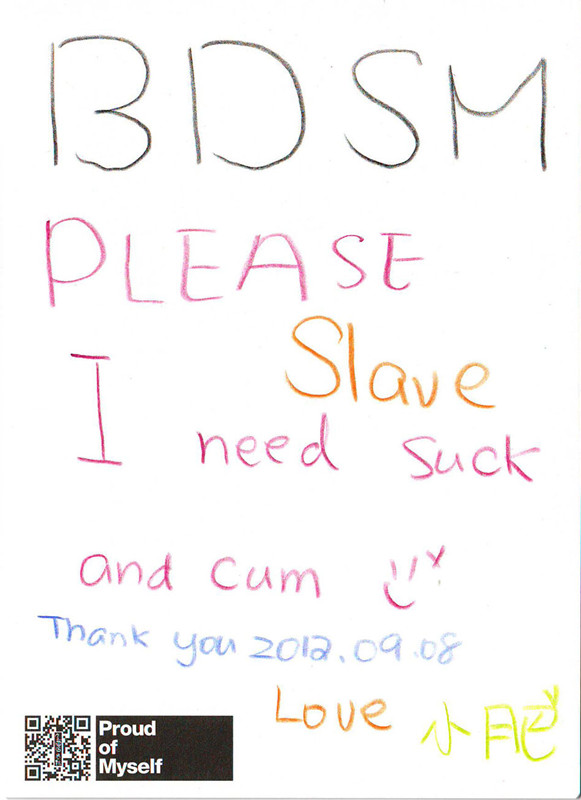 BDSM
PLEASE
Slave
I need suck
and cum
Thank you 2012.09.08
Love 小肥
Proud
of
Myself